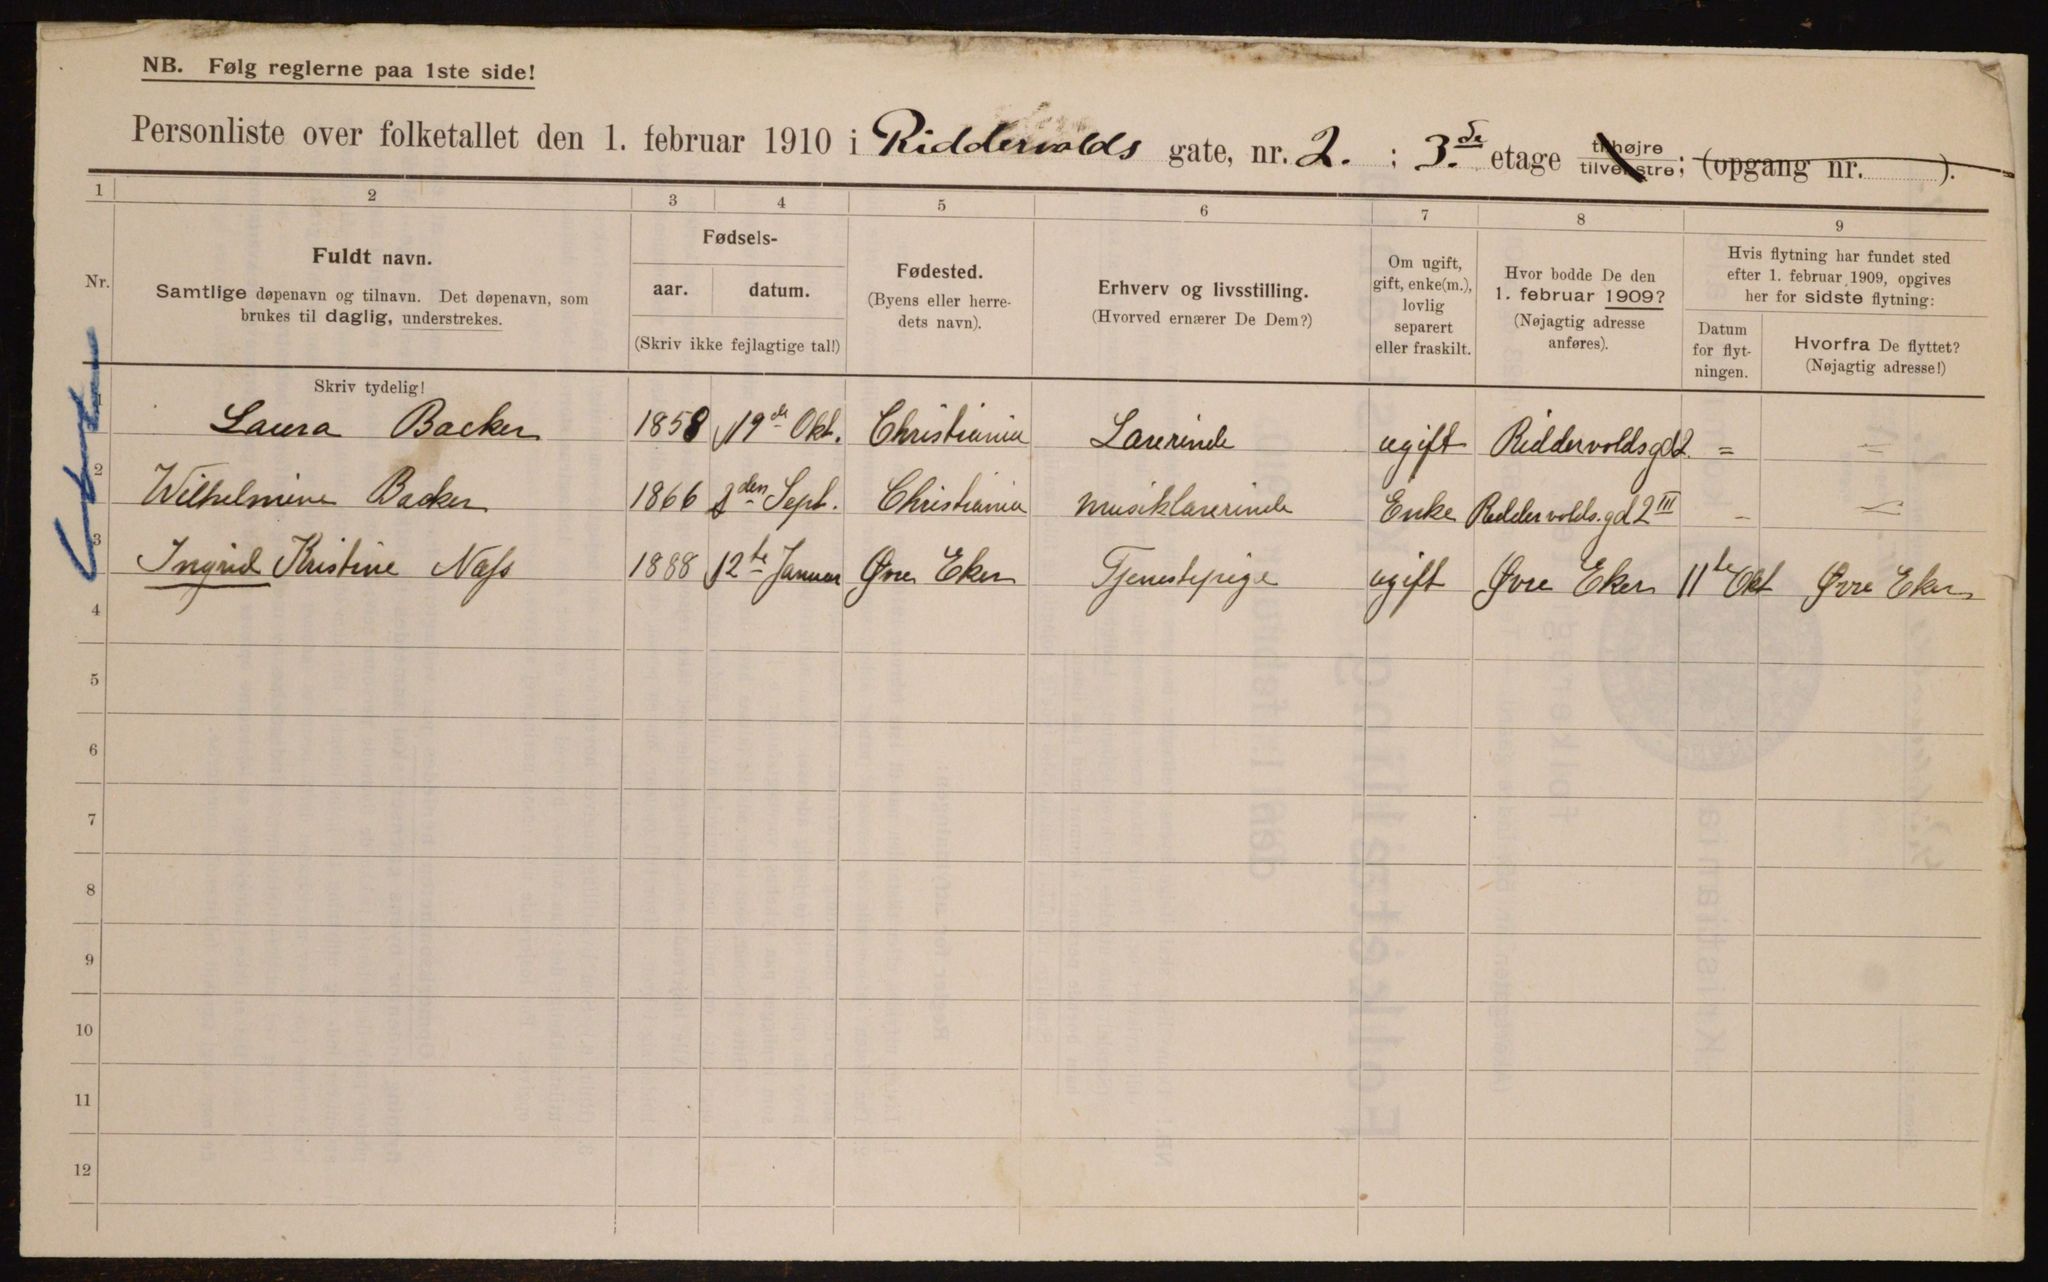 NB. Følg reglerne paa 1ste side!
Personliste over folketallet den 1. februar 1910 i Riddervolds gate, nr. 2. ; 3.de etage tilhøjre tilvenstre; (opgang nr. ).
1 2 3 4 5 6 7 8 9
Nr.
Fuldt navn.
Samtlige døpenavn og tilnavn. Det døpenavn, som
brukes til daglig, understrekes.
Skriv tydelig!
Fødsels-
aar. datum.
(Skriv ikke fejlagtige tal!)
Fødested.
(Byens eller herre-
dets navn).
Erhverv og livsstilling.
(Hvorved ernærer De Dem?)
Om ugift,
gift, enke(m.),
lovlig
separert
eller fraskilt.
Hvor bodde De den
1. februar 1909?
(Nøjagtig adresse
anføres).
Hvis flytning har fundet sted
efter 1. februar 1909, opgives
her for sidste flytning:
Datum
for flyt-
ningen.
Hvorfra De flyttet?
(Nøjagtig adresse!)
1 Laura Backer 1858 19de Okt. Christiania Lærerinde ugift Riddervoldsgd 2. = =
2 Wilhelmine Backer 1866 den Sept. Christiania Musiklærerinde Enke Riddervolds.gd 2 III – –
3 Ingrid Kristine Næss 1888 12te Januar Øvre Eker Tjenestepige ugift Øvre Eker 11te Okt Øvre Eker
4
5
6
7
8
9
10
11
12